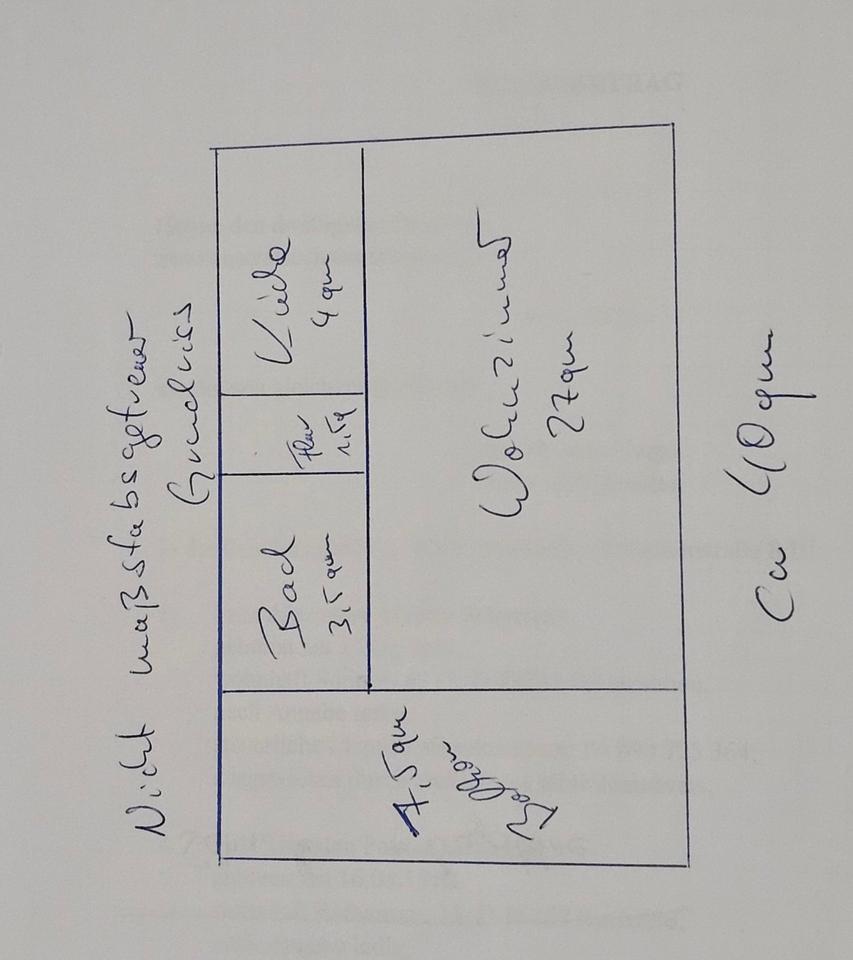 Nicht maßstabsgetreuer
Grundriss
Bad
3,5 qm
Flur
1,5q
Küche
4 qm
Wohnzimmer
27qm
7,5qm
Balkon
Ca 40qm